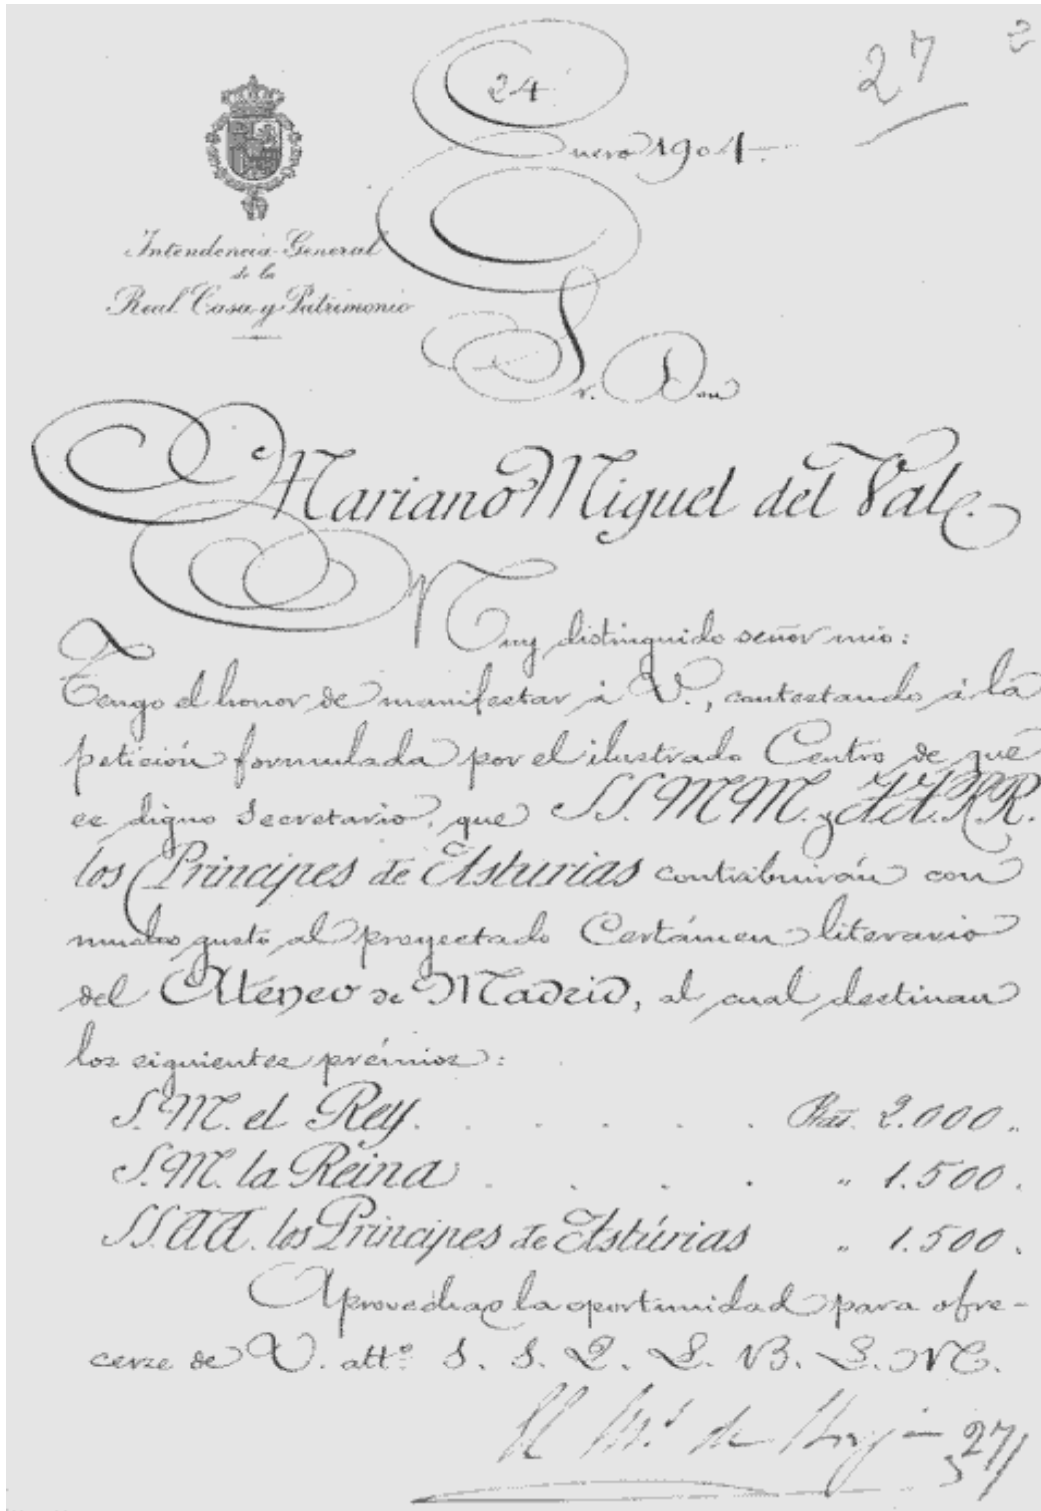 27
24
Enero 1904.
Intendencia General
de la
Real Casa y Patrimonio
Sr. Don
Mariano Miguel del Val.
Muy distinguido señor mio:
Tengo el honor de manifestar á V., contestando á la
petición formulada por el ilustrado Centro de que
es digno Secretario, que SS. MM. y AA. RR.
los Principes de Asturias contribuirán con
mucho gusto al proyectado Certámen literario
del Ateneo de Madrid, al cual destinan
los siguientes prémios:
S. M. el Rey. . . . . . Ptas. 2.000 "
S. M. la Reina . . . . " 1.500 .
SS. AA. los Principes de Astúrias " 1.500 .
Aprovecho la oportunidad para ofre-
cerse de V. att.º S. S. Q. L. B. L. M.
El M.s de
27